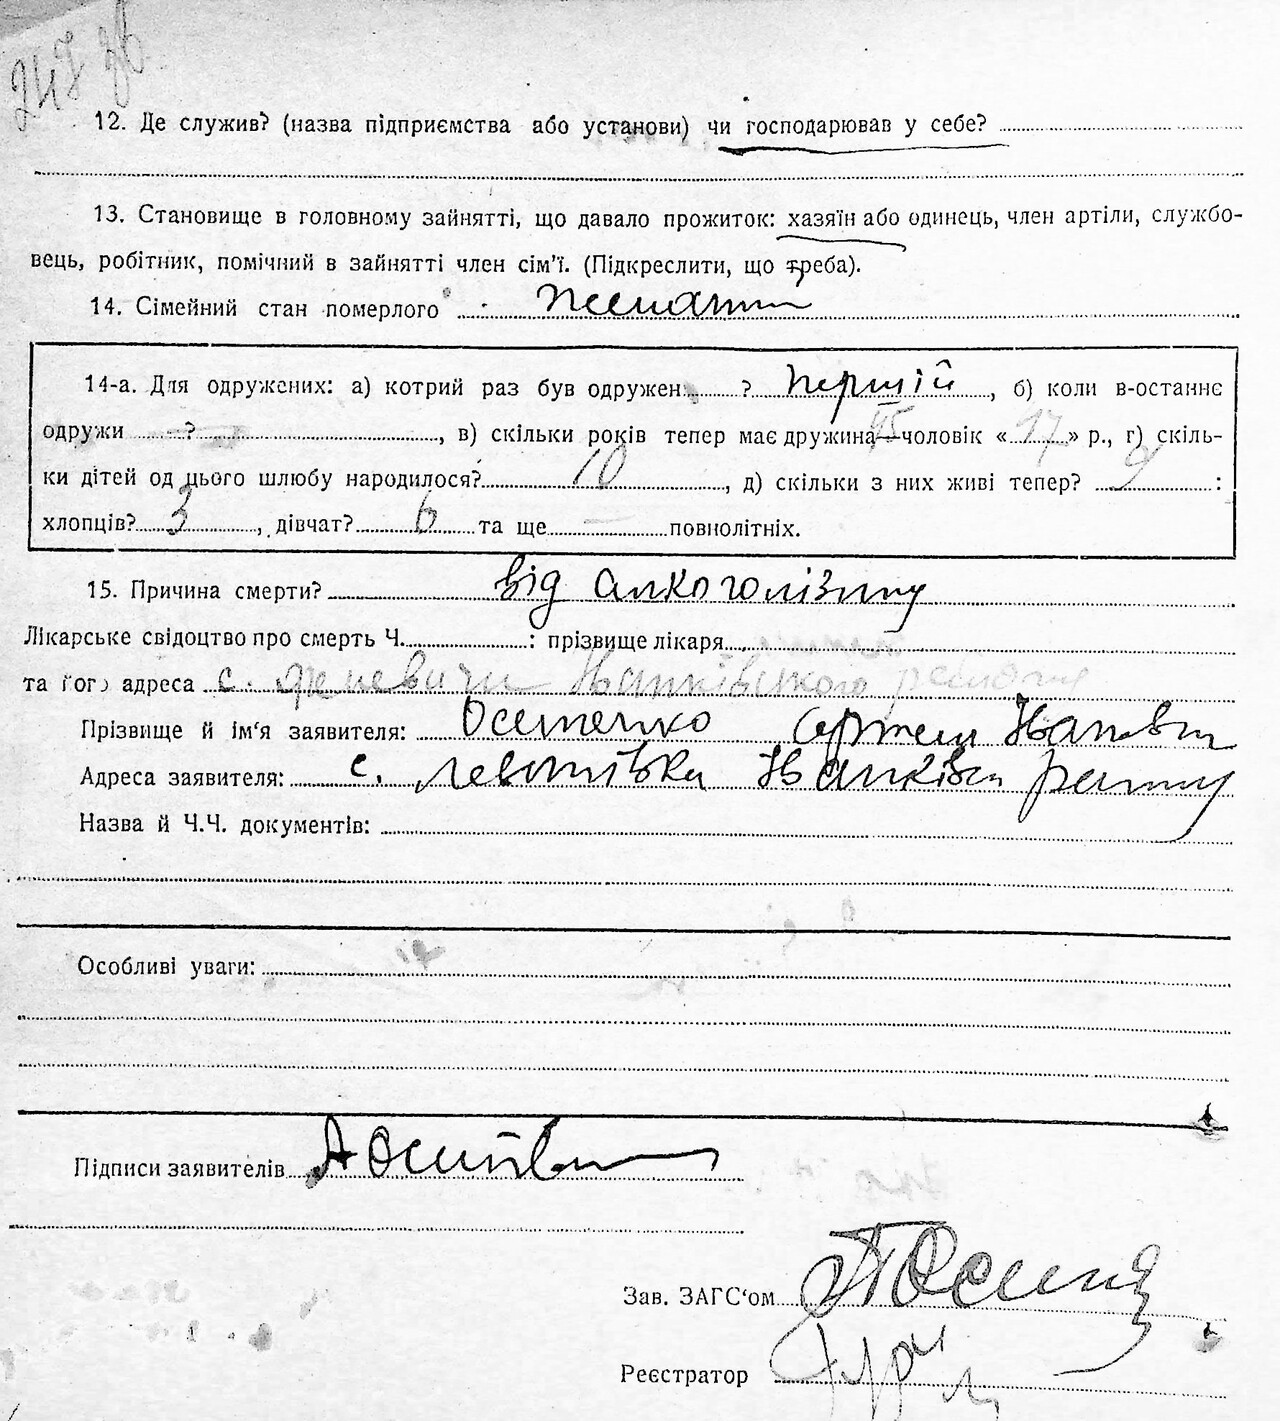 247 зв
12. Де служив? (назва підприємства або установи) чи господарював у себе?
13. Становище в головному зайнятті, що давало прожиток: хазяїн або одинець, член артіли, службо-
вець, робітник, помічний в зайнятті член сім'ї. (Підкреслити, що треба).
14. Сімейний стан померлого
14-а. Для одружених: а) котрий раз був одружен ? першій, б) коли в-останнє
одружи ? , в) скільки років тепер має дружина 45 чоловік « 17 » р., г) скіль-
ки дітей од цього шлюбу народилося? 10 , д) скільки з них живі тепер? 9 :
хлопців? 3 , дівчат? 6 та ще — повнолітніх.
15. Причина смерти? від алкоголізму
Лікарське свідоцтво про смерть Ч. : прізвище лікаря
та його адреса с. Феневичи Іванківського району
Прізвище й ім'я заявителя:
Адреса заявителя: с. Іванків
Назва й Ч.Ч. документів:
Особливі уваги:
Підписи заявителів
Зав. ЗАГС'ом
Реєстратор